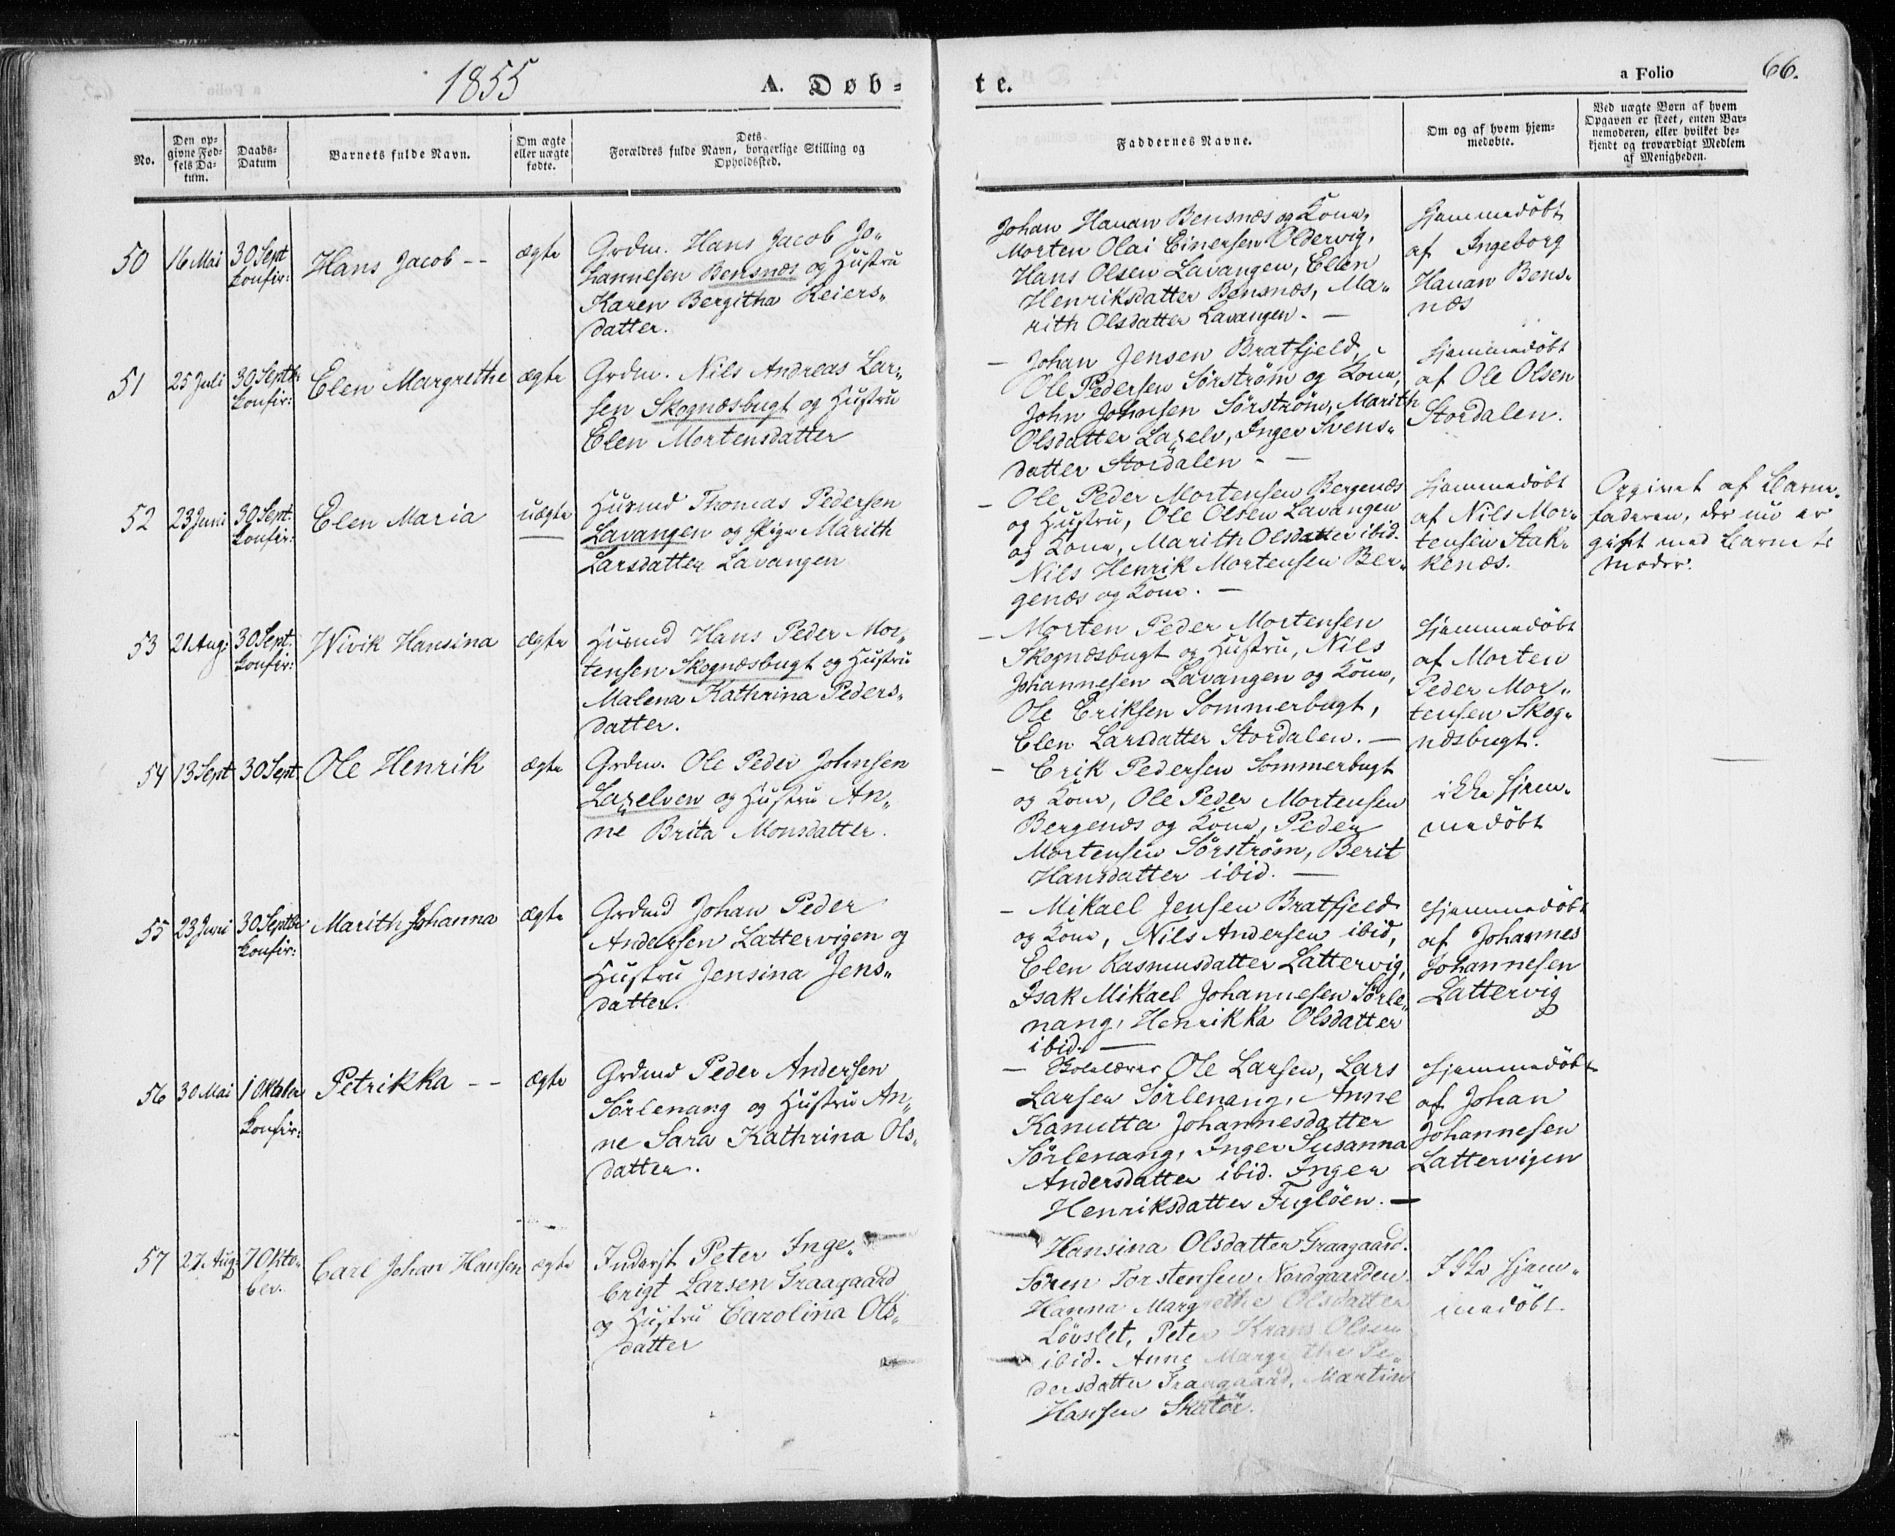 1855
A. Døb-
te.
a Folio
66.
No.
Den op-
givne Fød-
sels Da-
tum.
Daabs-
Datum
Barnets fulde Navn.
Om ægte
eller uægte
fødte.
Dets
Forældres fulde Navn, borgerlige Stilling og
Opholdssted.
Faddernes Navne.
Om og af hvem hjem-
medøbte.
Ved uægte Børn af hvem
Opgaven er skeet, enten Bar-
nemoderen, eller hvilket be-
kjendt og troværdigt Medlem
af Menigheden.
50
16 Mai
30 Sept
konfir:
Hans Jacob --
ægte
Grdm. Hans Jacob Jo-
hannesen Bensnæs og Hustru
Karen Bergitha Reiers-
datter.
Johan Hanan Bensnæs og Kone,
Morten Olai Einersen Oldervig,
Hans Olsen Lavangen, Elen
Henriksdatter Bensnæs, Ma-
rith Olsdatter Lavangen. —
hjemmedøbt
af Ingeborg
Hanan Bens-
næs
51
25 Juli
30 Septbr
konfir:
Elen Margrethe
ægte
Grdm. Nils Andreas Lar-
sen Skognæsbugt og Hustru
Elen Mortensdatter
— Johan Jensen Bratfjeld,
Ole Pedersen Sörström og Kone,
John Johnsen Sørstrøm, Marith
Olsdatter Laxelv, Inger Svens-
datter Stordalen - —
hjemmedöbt
af Ole Olsen
Stordalen.
52
23 Juni
30 Sept.
konfir:
Elen Maria
uægte
Husmd Thomas Pedersen
Lavangen og Pige Marith
Larsdatter Lavangen
— Ole Peder Mortensen Bergenæs
og Hustru, Ole Olsen Lavangen
og Kone, Marith Olsdatter ibid.
Nils Henrik Mortensen Ber-
genæs og Kone. —
hjemmedöbt
af Nils Mor-
tensen Stak-
kenæs.
Opgivet af Barne-
faderen, der nu er
gift med Barnets
Moder.
53
21 Aug:
30 Sept.
konfir:
Wivik Hansina
ægte
Husmd Hans Peder Mor-
tensen Skognæsbugt og Hustru
Malena Kathrina Peders-
datter.
— Morten Peder Mortensen
Skognæsbugt og Hustru, Nils
Johannesen Lavangen og Kone,
Ole Eriksen Sommerbugt,
Elen Larsdatter Stordalen. —
hjemmedøbt
af Morten
Peder Mor-
tensen Skog-
næsbugt.
54
13 Sept
30 Sept.
Ole Henrik
ægte
Grdm. Ole Peder Johnsen
Laxelven og Hustru An-
ne Brita Monsdatter.
— Erik Pedersen Sommerbugt
og Kone, Ole Peder Mortensen
Bergenæs og Kone, Peder
Mortensen Sörström, Berit
Hansdatter ibid. —
ikke hjem-
medøbt
55
23 Juni
30 Septbr
konfir:
Marith Johanna
ægte
Grdmd Johan Peder
Andersen Lattervigen og
Hustru Jensina Jens-
datter.
— Mikael Jensen Bratfjeld
og Kone, Nils Andersen ibid,
Elen Rasmusdatter Lattervig,
Isak Mikael Johannesen Sørle-
nang, Henrikka Olsdatter
ibid. —
hjemmedøbt
af Johannes
Johannesen
Lattervig
56
30 Mai
1 Oktober
konfir:
Petrikka --
ægte
Grdmd Peder Andersen
Sörlenang og Hustru An-
ne Sara Kathrina Ols-
datter.
— Skolelærer Ole Larsen, Lars
Larsen Sörlenang, Anne
Kanutta Johannesdatter
Sörlenang, Inger Susanna
Andersdatter ibid. Inger
Henriksdatter Fuglöen. —
hjemmedøbt
af Johan
Johannesen
Lattervigen
57
27 Aug
7 Okto-
ber.
Carl Johan Hansen
ægte
Inderst Peter Inge-
brigt Larsen Graagaard
og Hustru Carolina Ols-
datter
Hansina Olsdatter Graagaard.
Sören Torstensen Nordgaarden.
Hanna Margrethe Olsdatter
Lövslet, Peter Krans Olsen
ibid. Anne Margrethe Pe-
dersdatter Graagaard, Martin
Hansen Skatør.
Ikke hjem-
medøbt.